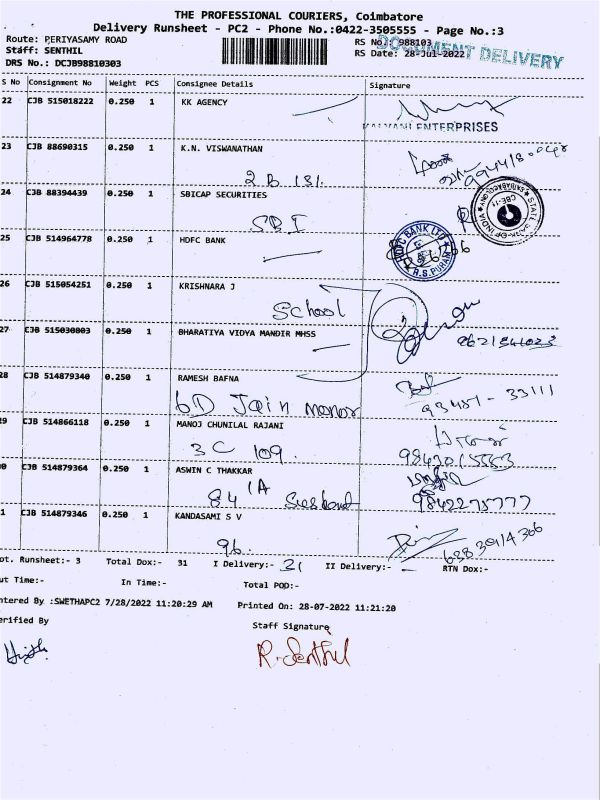 THE PROFESSIONAL COURIERS, Coimbatore
Delivery Runsheet - PC2 - Phone No.:0422-3505555 - Page No.:3
Route: PERIYASAMY ROAD RS No.: 988103
Staff: SENTHIL RS Date: 28-Jul-2022
DOCUMENT DELIVERY
DRS No.: DCJB98810303
S No Consignment No Weight PCS Consignee Details Signature
22 CJB 515018222 0.250 1 KK AGENCY
KALYANI ENTERPRISES
23 CJB 88690315 0.250 1 K.N. VISWANATHAN
2 B 131.
24 CJB 88394439 0.250 1 SBICAP SECURITIES
SBI
STATE BANK OF INDIA
25 CJB 514964778 0.250 1 HDFC BANK
HDFC BANK LTD
R.S.PURAM
26 CJB 515054251 0.250 1 KRISHNARA J
School
27 CJB 515030803 0.250 1 BHARATIYA VIDYA MANDIR MHSS
28 CJB 514879340 0.250 1 RAMESH BAFNA
6D Jain manor
93451 - 33111
29 CJB 514866118 0.250 1 MANOJ CHUNILAL RAJANI
3 C 109.
9843015553
0 CJB 514879364 0.250 1 ASWIN C THAKKAR
84 1A
9842275777
1 CJB 514879346 0.250 1 KANDASAMI S V
96.
ot. Runsheet:- 3 Total Dox:- 31 I Delivery:- 31 II Delivery:- — RTN Dox:-
ut Time:- In Time:- Total POD:-
ntered By :SWETHAPC2 7/28/2022 11:20:29 AM Printed On: 28-07-2022 11:21:20
erified By Staff Signature
R. Senthil